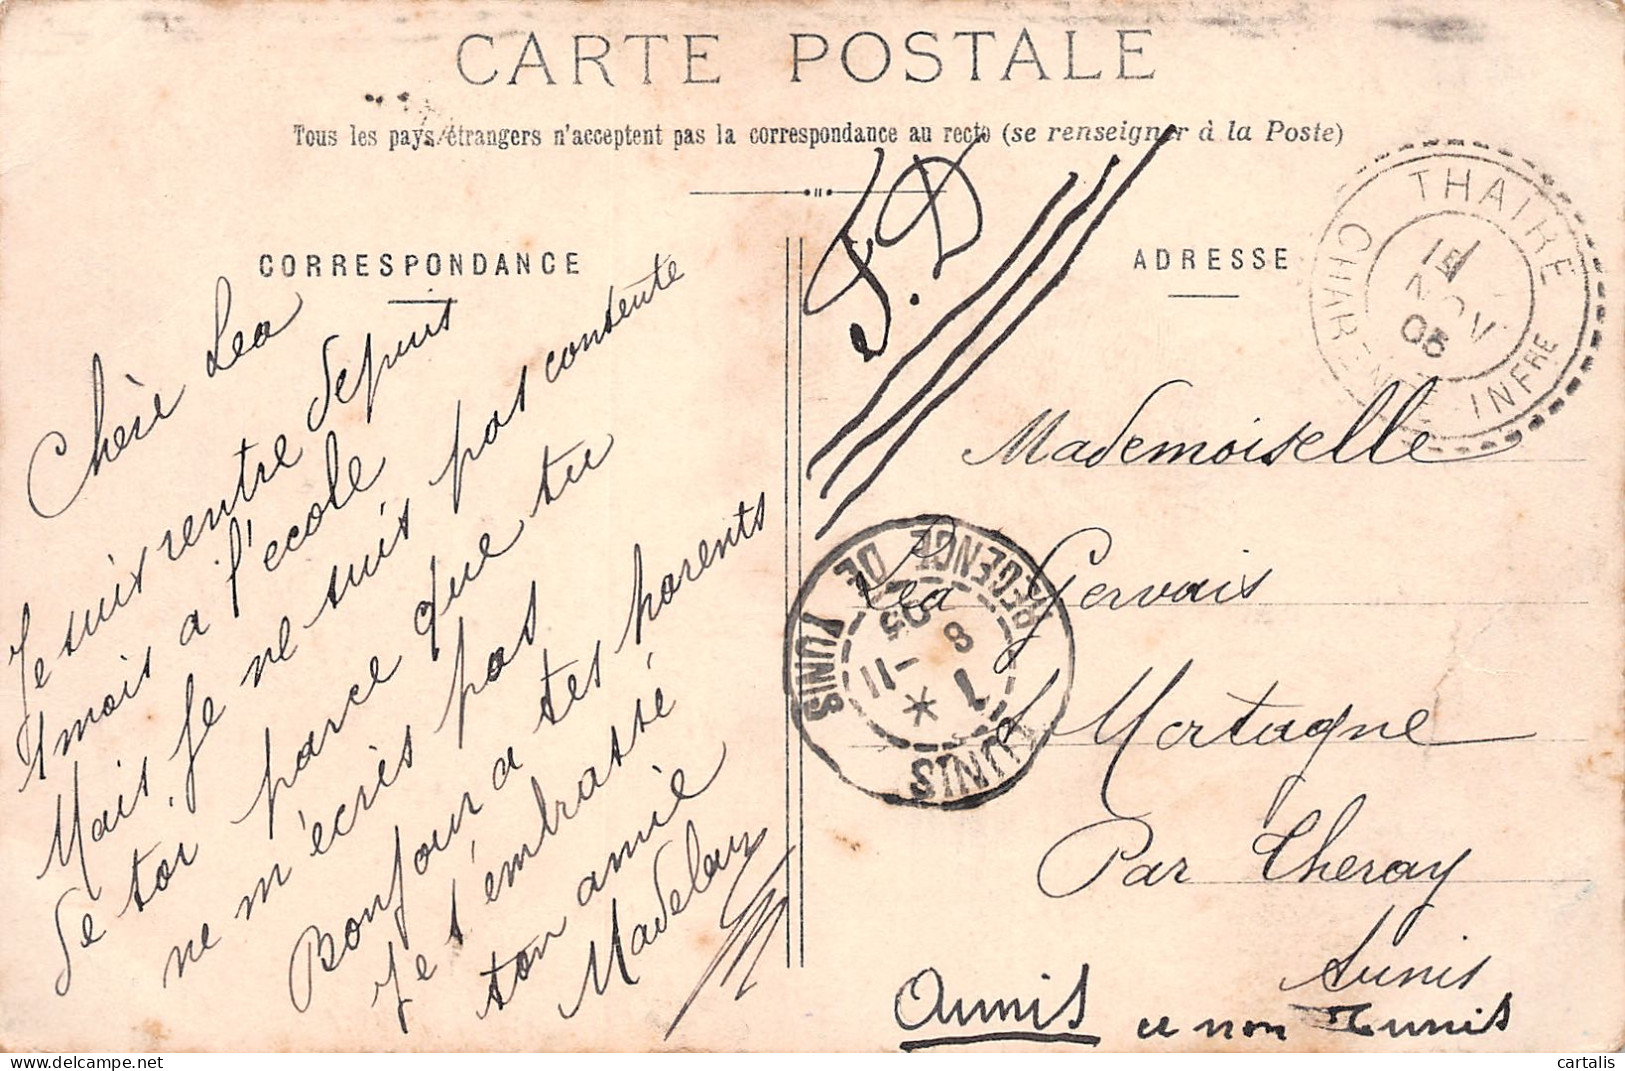 CARTE POSTALE
Tous les pays étrangers n'acceptent pas la correspondance au recto (se renseigner à la Poste)
CORRESPONDANCE
Chere Lea
Je suis rentre depuis
1 mois a l'ecole
Mais. Je ne suis pas contente
De toi parce que tu
ne m'ecris pas
Bonjour a tes parents
Je t'embrasse
ton amie
F.D
ADRESSE
THAIRE
CHARENTE INFRE
15
NOV
05
Mademoiselle
Lea Gervais
Mortagne
Par Cheray
Aunis
Aunis et non Tunis
TUNIS
REGENCE DE TUNIS
7 -11
8 05
cartalis